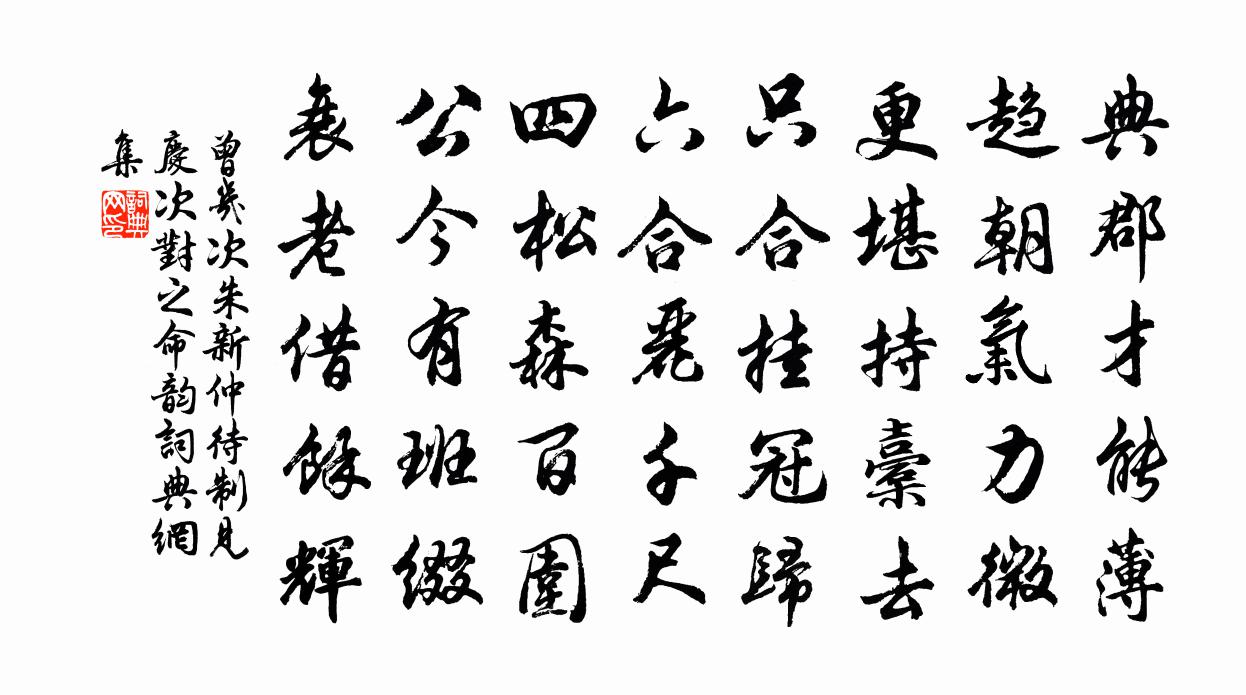 典郡才能薄
趨朝氣力微
更堪持橐去
只合挂冠歸
六合麗千尺
四松森百圍
公今有班綴
衰老借餘輝
曾幾次朱新仲待制見
慶次對之命韵詞典網
集
詞典網印